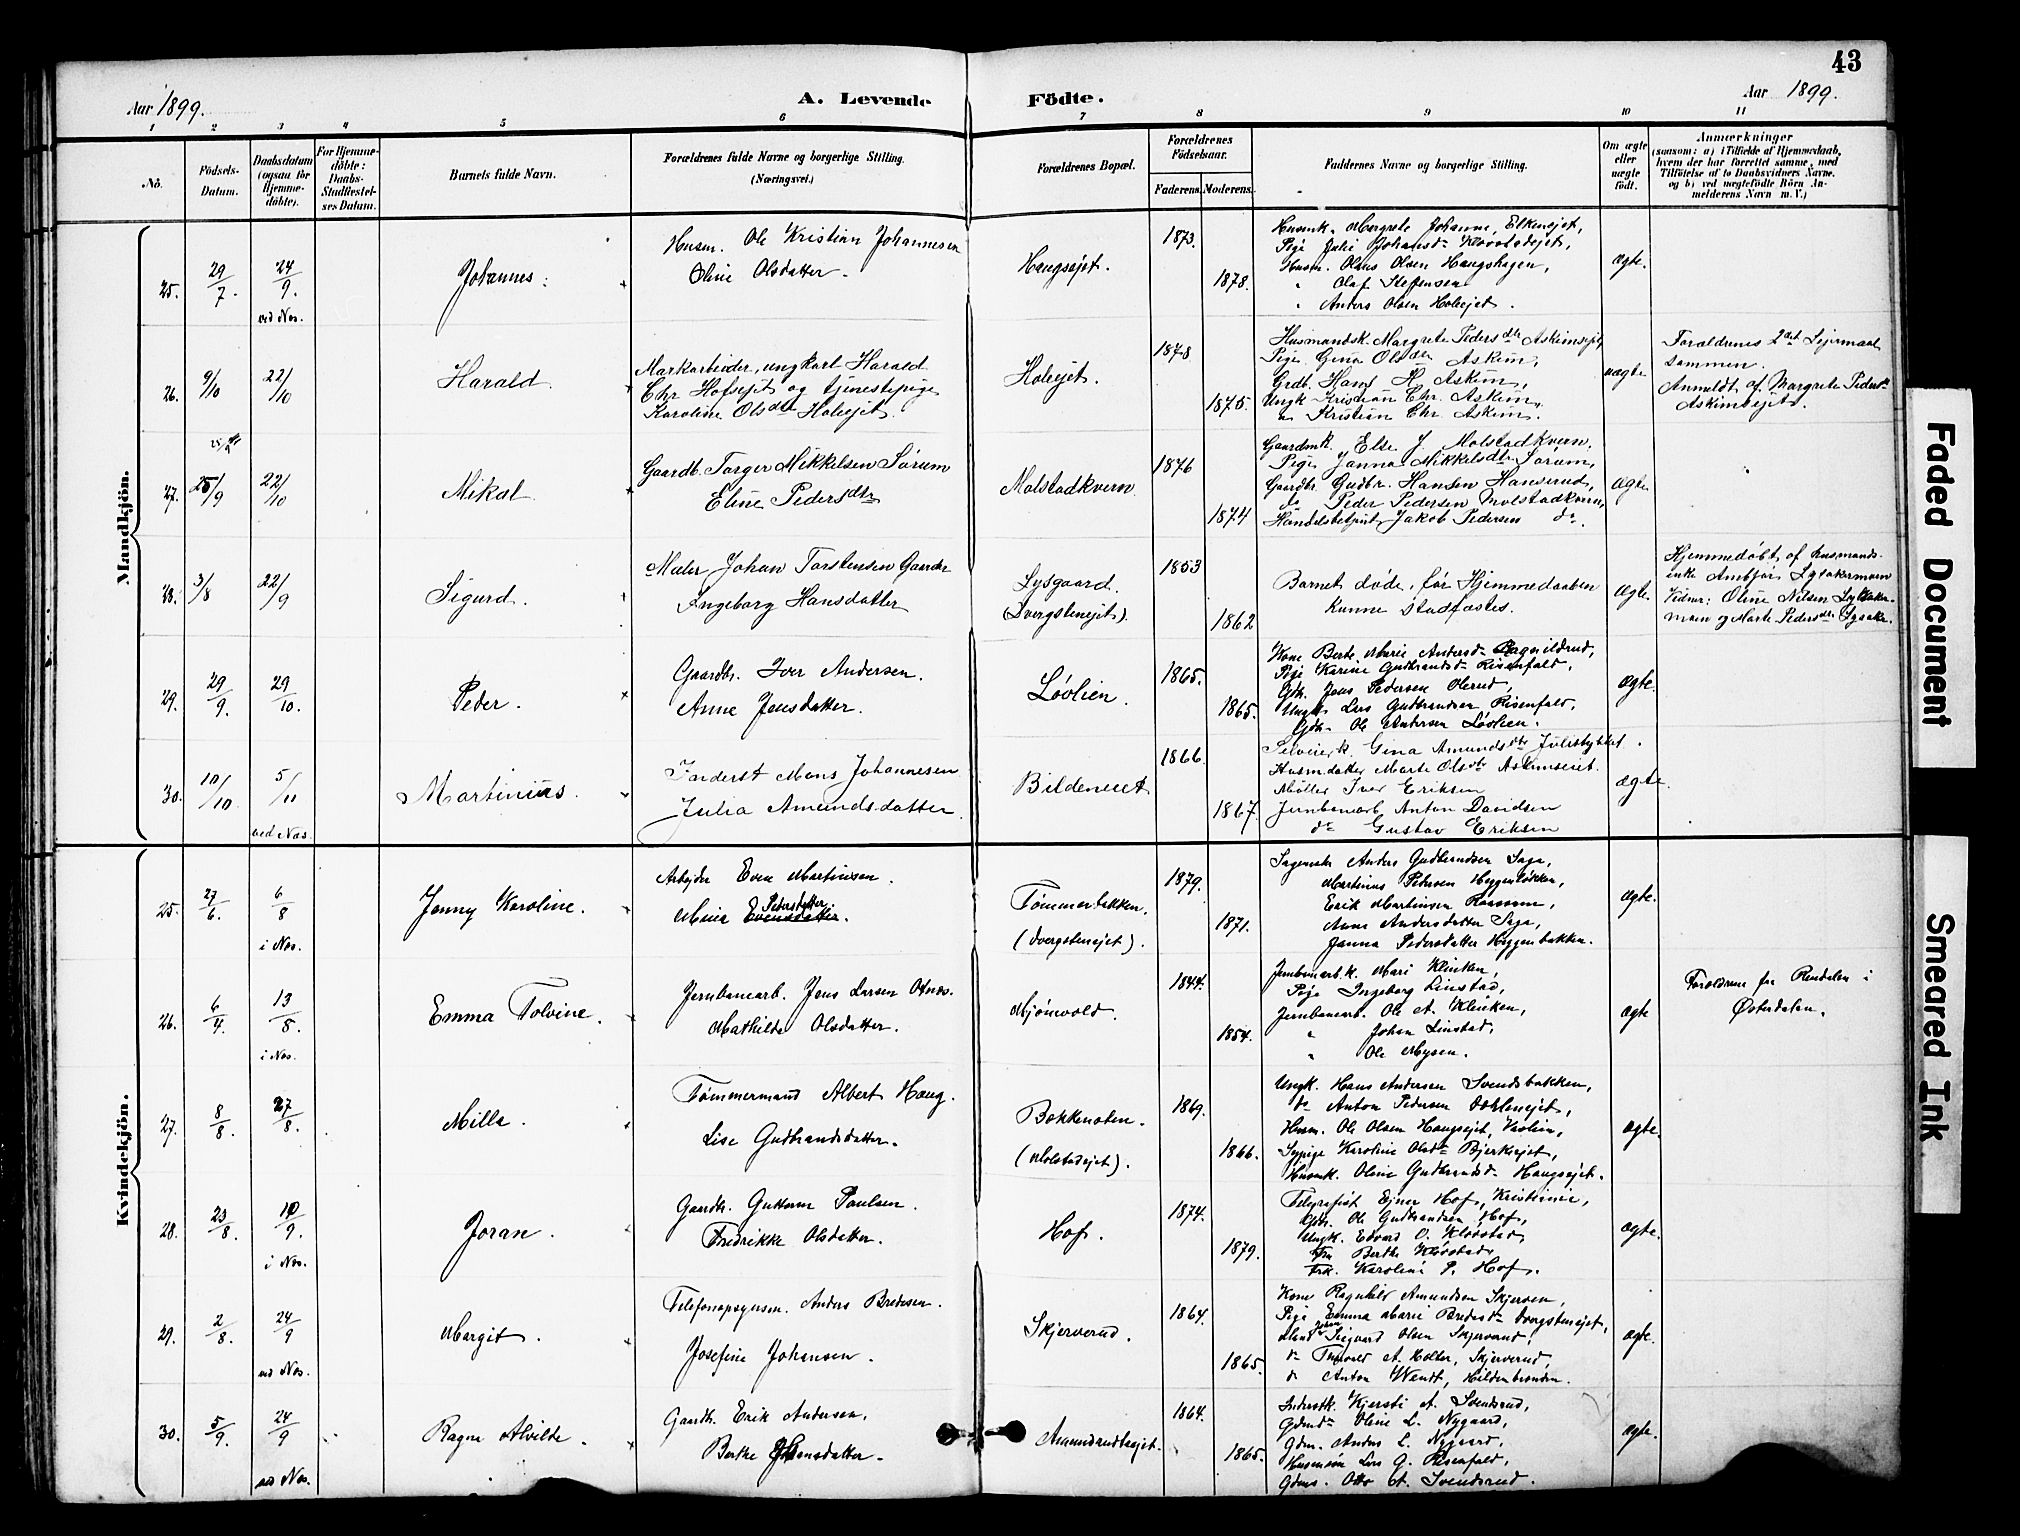 43
Aar 1899.
A. Levende Födte.
Aar 1899.
1 2 3 4 5 6 7 8 9 10 11
No.
Födsels-Datum.
Daabsdatum (ogsaa for Hjemmedöbte).
For Hjemmedöbte: Daabs-Stadfæstelses Datum.
Barnets fulde Navn.
Forældrenes fulde Navne og borgerlige Stilling. (Næringsvei.)
Forældrenes Bopæl.
Forældrenes Födselsaar.
Faderens. Moderens.
Faddernes Navne og borgerlige Stilling.
Om ægte eller uægte födt.
Anmærkninger
(saasom: a) i Tilfælde af Hjemmedaab,
hvem der har forrettet samme, med
Tilföielse af to Daabsvidners Navne.
og b) ved uægtefödte Börn An-
melderens Navn m. V.)
Mandkjön.
25. 29/7. 24/9. ved Nos.
Johannes.
Husm. Ole Kristian Johannesen
Oline Olsdatter.
Haugsejet.
1873.
1878.
Husmk. Margrete Johanne, Elkensjet,
Pige Julie Johansd. Klovstadejet,
Husm. Olaus Olsen Haugshagen,
" Olaf Steffensen
" Anders Olsen Holeejet.
ægte.
26. 9/10 22/10
Harald.
Markarbeider, ungkarl Harald
Chr Hofsejet og tjenestepige
Karoline Olsdtr Holeejet.
Holeejet.
1878
1875.
Husmandsk. Margrete Pedersdtr Askimsejet,
Pige Gina Olsdtr Askim,
Grdb. Hans H. Askim,
Ungk Kristian Chr. Askim,
" Kristian Chr. Askim.
uægte
Forældrenes 2det Lejermaal
sammen.
Anmeldt af Margrete Pedersdtr
Askimsejet.
27. 25/9 22/10
Mikal
Gaardb. Torger Mikkelsen Sørum
Eline Pedersdtr
Molstadkvern
1876
1874
Gaardmk. Else J. Molstadkvern.
Pige Janna Mikkelsdtr Sørum,
Gaardbr. Gudbr. Hansen Hanserud,
do Peder Pedersen Molstadkvern,
Handelsbetjent Jakob Pedersen do.
ægte
28. 3/8 22/9
Sigurd.
Maler Johan Torstensen Gaarder
Ingeborg Hansdatter
Lysgaard.
(Dvergstenejet).
1853
1862
Barnet døde, før Hjemmedaaben
kunne stadfæstes.
ægte.
Hjemmedøbt af husmands-
enke Ambjør Lysakermoen
Vidner: Oline Nilsen Lysaker-
moen og Marte Pedersdtr Lysaker.
29. 29/9. 29/10.
Peder.
Gaardbr. Iver Andersen.
Anne Jensdatter.
Løvlien.
1865.
1865.
Kone Berte Marie Andersd. Ragnildrud,
Pige Karine Gudbrandsd. Risenfald,
Gbr. Jens Pedersen Olerud,
Ungk Lars Gudbrandsen Risenfald,
Gbr. Ole Andersen Løvlien.
ægte.
30. 10/10 5/11 ved Nos.
Martinius.
Inderst Mons Johannesen
Julia Amundsdatter
Bildeneiet
1866.
1867.
Selveierk Gina Amundsdtr Julistykket.
Husmdatter Marte Olsdtr Askimseiet.
Møller Iver Eriksen
Jernbanearb Anton Davidsen
do Gustav Eriksen
ægte.
Kvindekjön.
25. 27/6. 6/8 i Nos.
Jenny Karoline.
Arbejder Even Martinsen.
Mina Pedersdatter.
Tømmerbakken.
(Dvergstenejet).
1879.
1871.
Sagmester Anders Gudbrandsen Saga,
Martinus Pedersen Heggenbakken,
Erik Martinsen
Anne Andersdatter Saga,
Janna Pedersdatter Heggenbakken.
ægte.
26. 6/4. 13/8. i Nos.
Emma Tolvine.
Jernbanearb. Jens Larsen Otnes.
Mathilde Olsdatter.
Mjønvold.
1844.
1854.
Jernbanearb.k. Mari Klinken,
Pige Ingeborg Linstad,
Jernbanearb. Ole A. Klinken,
" Johan Linstad,
" Ole Mysen.
ægte
Forældrene fra Rendalen i
Østerdalen.
27. 8/8. 27/8.
Milla.
Tømmermand Albert Haug.
Lise Gudbrandsdatter.
Bakkenoten.
(Molstadejet).
1869.
1866.
Ungk. Hans Andersen Svendsbakken,
do Anton Pedersen
Husm. Ole Olsen Haugsejet,
Sypige Karoline Olsdtr Bjerkeejet,
Husmk. Oline Gudbrandsd. Haugsejet.
ægte.
28. 23/8. 10/9. i Nos.
Joran.
Gaardbr. Guttorm Paulsen.
Fredrikke Olsdatter.
Hof.
1874.
1879.
Telegrafist Ejner Hof, Kristiania,
Gbr. Ole Gudbrandsen Hof,
Ungk. Edvard O. Klovstad
Fru Berthe Klovstad
Frk. Karoline P. Hof.
ægte.
29. 2/8. 24/9 ved Nos.
Margit.
Telefonopsynsm. Anders Bredesen.
Josefine Johansen.
Skjerverud.
1864.
1865.
Kone Ragnhild Amundsen Skjerven,
Pige Emma Marie Bredesdtr Dvergstenejet,
Sigvard Olsen Skjerverud,
do Thorvald A. Holter, Skjerverud,
do Anton Wendt, Hildenbranden.
ægte.
30. 5/9. 24/9 ved Nos.
Ragna Alvilde.
Gaardb. Erik Andersen,
Berthe Hansdatter.
Amundrudsejet.
1864.
1865.
Inderstk. Kjersti A. Svendsrud,
Gdmdtr Oline L. Nygaard,
Gdm. Anders L. Nygaard,
Husmsøn Lars G. Risenfald,
Gdms. Otto A. Svendsrud.
ægte.
Faded Document
Smeared Ink